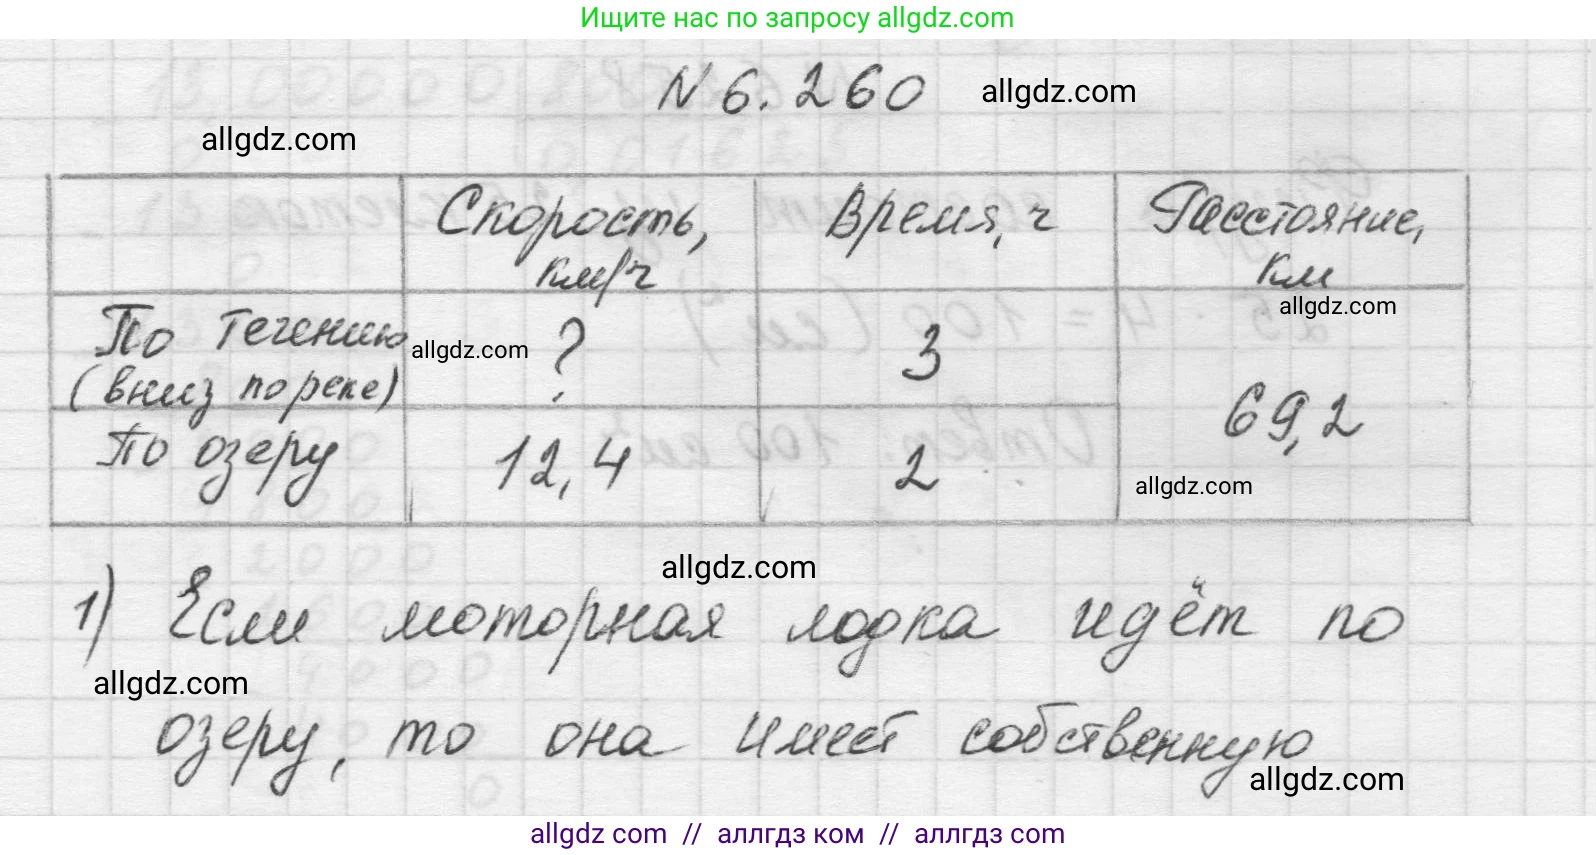 Ищите нас по запросу allgdz.com
N 6.260 allgdz.com
allgdz.com
Скорость, км/ч
Время, ч
Расстояние, км
allgdz.com
По течению (вниз по реке)
allgdz.com
?
3
69,2
По озеру
12,4
2
allgdz.com
allgdz.com
1) Если моторная лодка идёт по
allgdz.com
озеру, то она имеет собственную
allgdz.com
allgdz com // аллгдз ком // аллгдз com